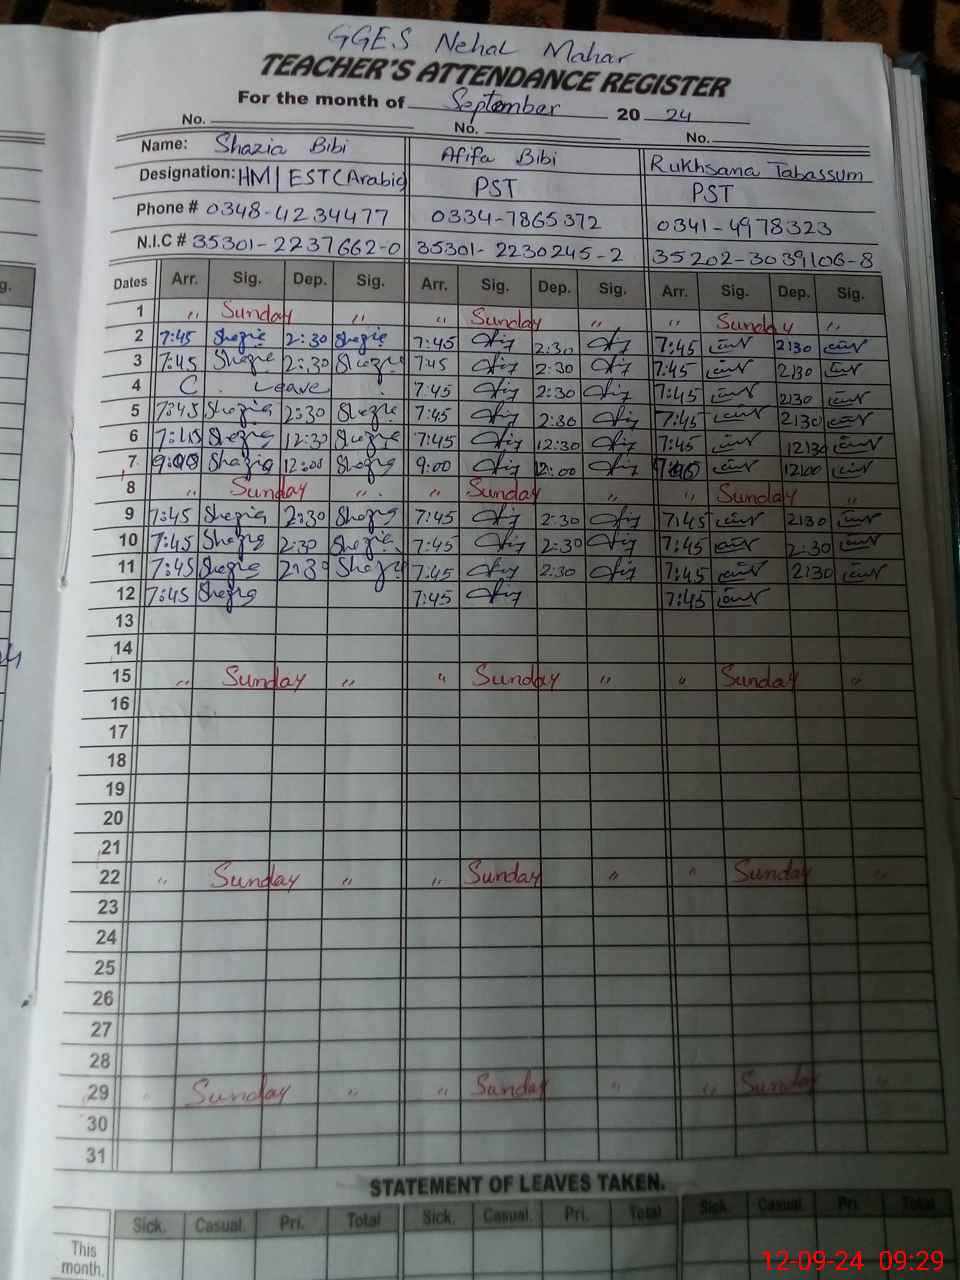 GGES Nehal Mahar
TEACHER'S ATTENDANCE REGISTER
For the month of September 20 24
No. No. No.
Name: Shazia Bibi Afifa Bibi Rukhsana Tabassum
Designation: HM| EST(Arabic) PST PST
Phone # 0348-4234477 0334-7865372 0341-4978323
N.I.C # 35301-2237662-0 35301-2230245-2 35202-3039106-8
Dates Arr. Sig. Dep. Sig. Arr. Sig. Dep. Sig. Arr. Sig. Dep. Sig.
1 〃 Sunday 〃 〃 Sunday 〃 〃 Sunday 〃
2 7:45 Shazia 2:30 Shazia 7:45 2:30 7:45 2:30
3 7:45 Shazia 2:30 Shazia 7:45 2:30 7:45 2:30
4 C. Leave 7:45 2:30 7:45 2:30
5 7:45 Shazia 2:30 Shazia 7:45 2:30 7:45 2:30
6 7:45 Shazia 12:30 Shazia 7:45 12:30 7:45 12:30
7 9:00 Shazia 12:00 Shazia 9:00 12:00 12:00
8 〃 Sunday 〃 〃 Sunday 〃 〃 Sunday 〃
9 7:45 Shazia 2:30 Shazia 7:45 2:30 7:45 2:30
10 7:45 Shazia 2:30 Shazia 7:45 2:30 7:45 2:30
11 7:45 Shazia 2:30 Shazia 7:45 2:30 7:45 2:30
12 7:45 Shazia 7:45 7:45
13
14
15 〃 Sunday 〃 〃 Sunday 〃 〃 Sunday 〃
16
17
18
19
20
21
22 〃 Sunday 〃 〃 Sunday 〃 〃 Sunday 〃
23
24
25
26
27
28
29 〃 Sunday 〃 〃 Sunday 〃 〃 Sunday 〃
30
31
STATEMENT OF LEAVES TAKEN.
Sick. Casual. Pri. Total Sick. Casual. Pri. Total Sick. Casual. Pri. Total
This
month.
12-09-24 09:29